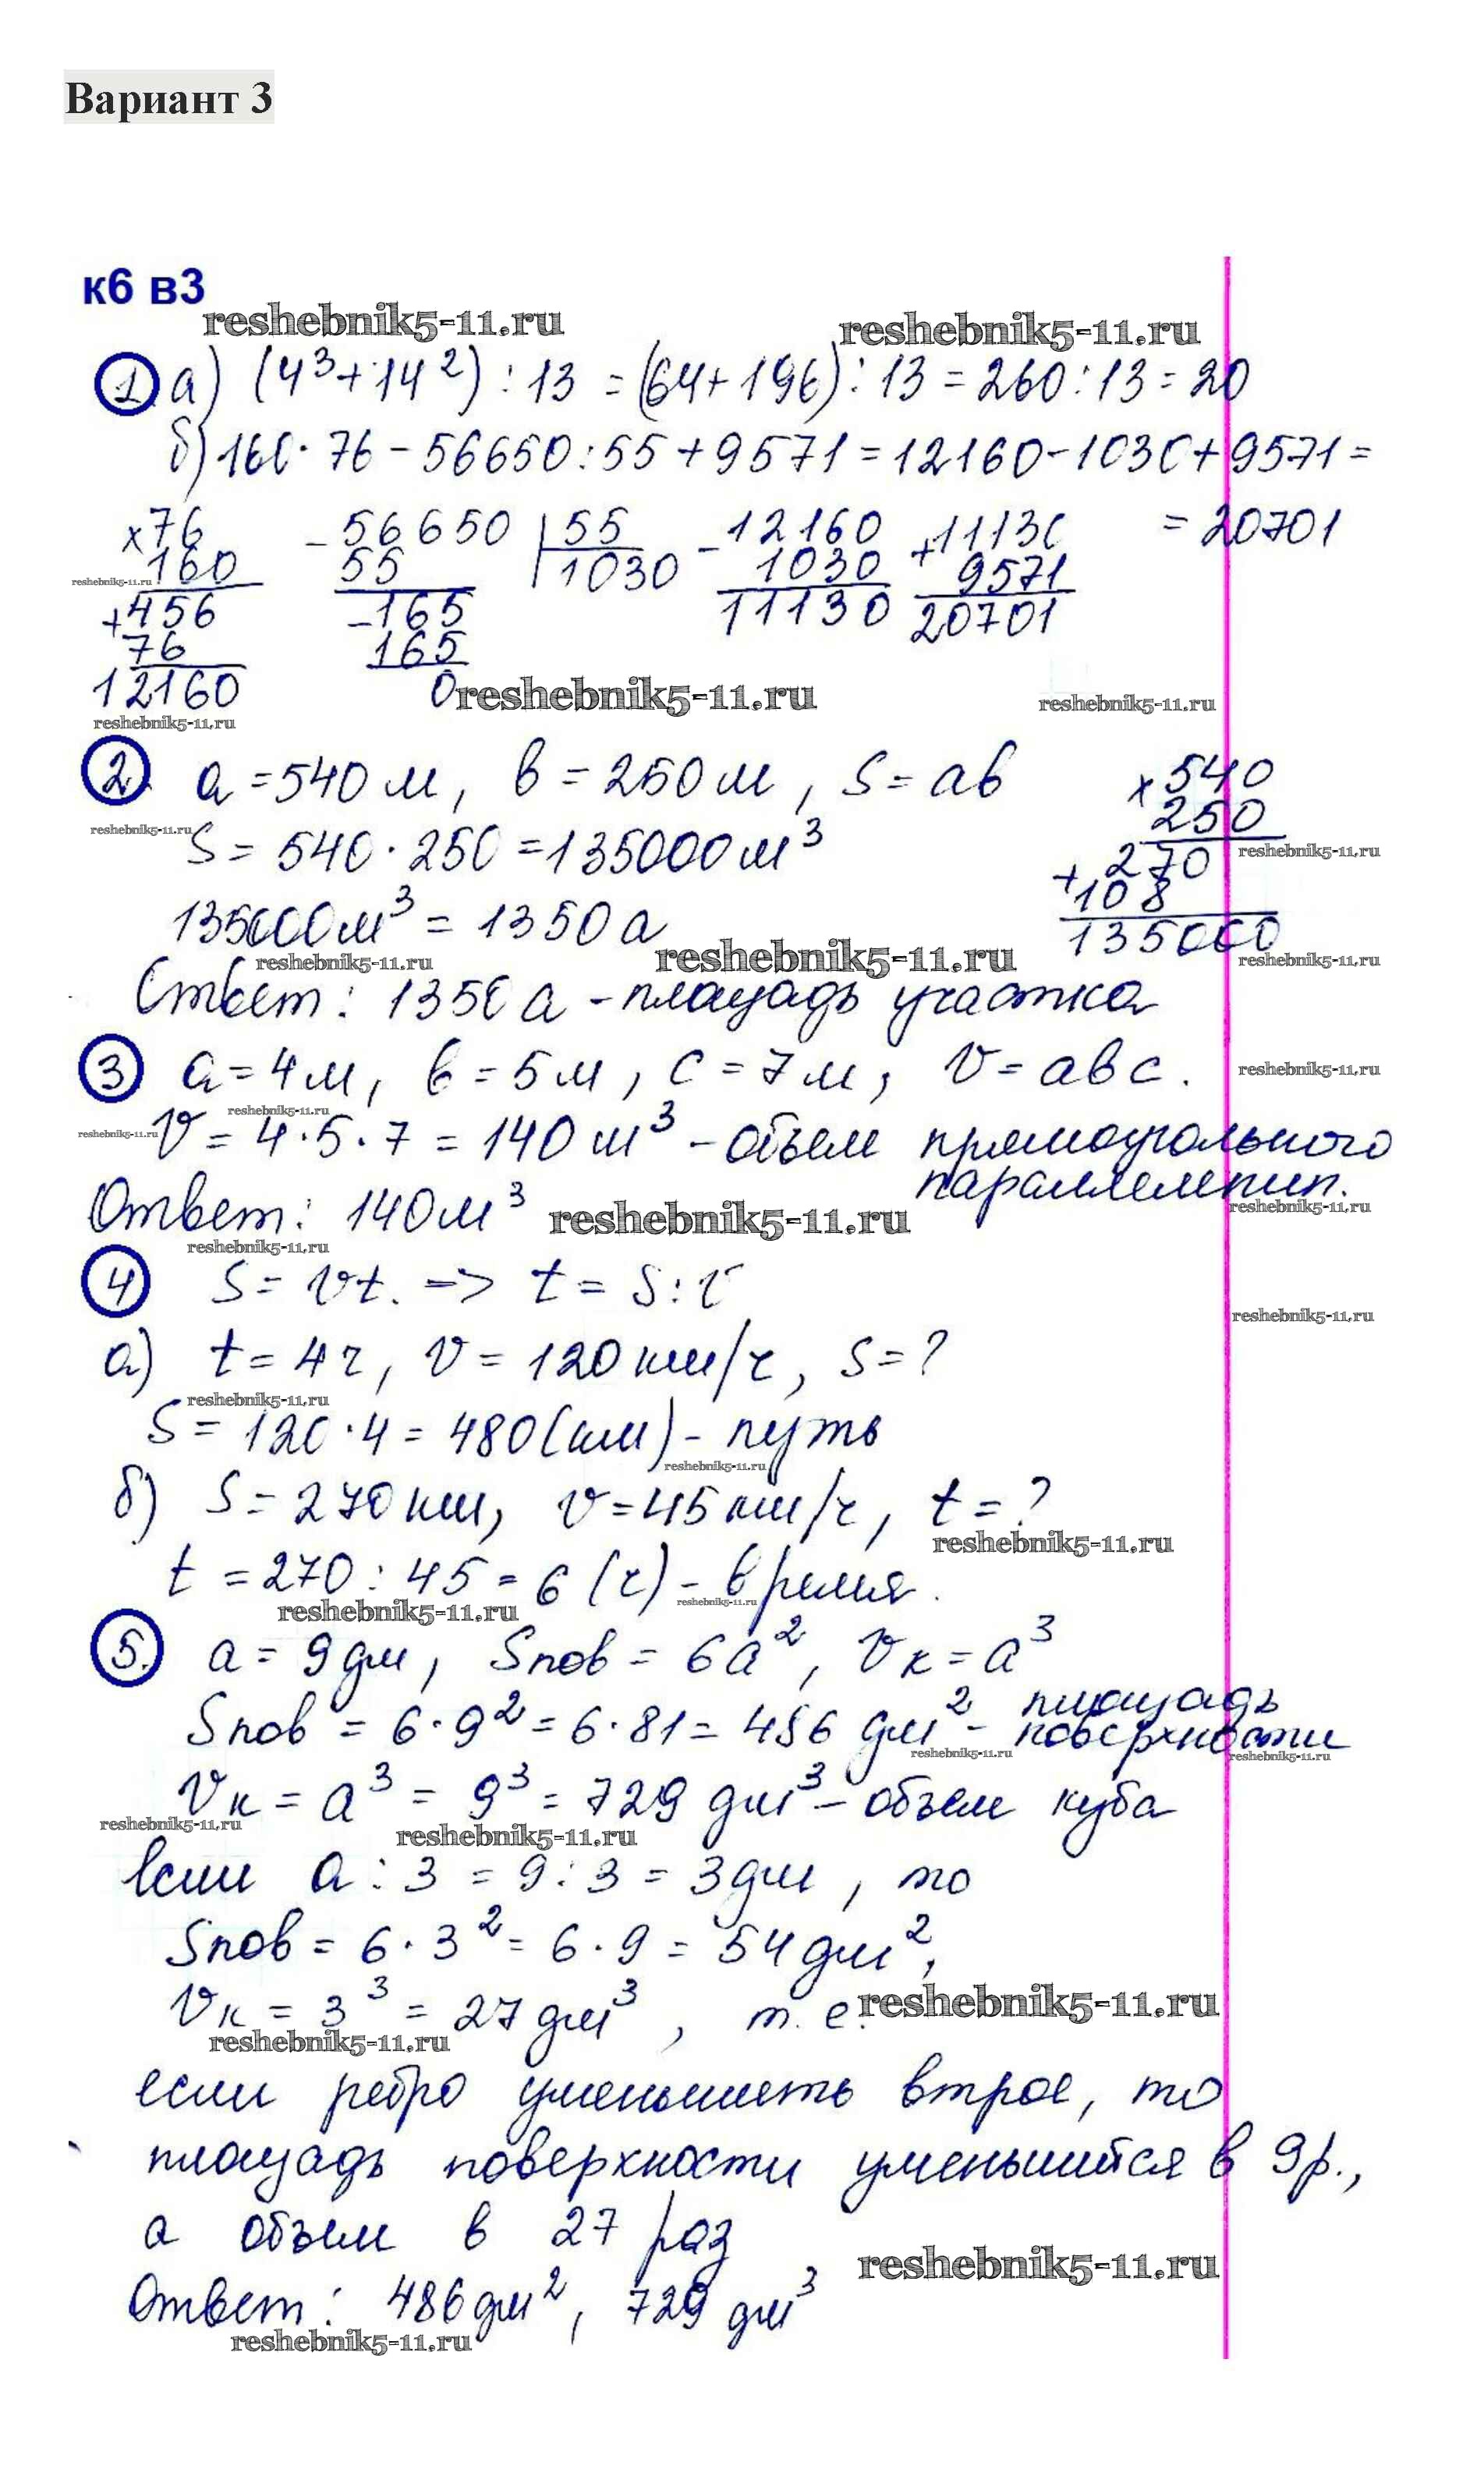 Вариант 3
к6 в3
reshebnik5-11.ru
reshebnik5-11.ru
1. а) (4³+14²) : 13 = (64+196) : 13 = 260 : 13 = 20
б) 160 · 76 - 56650 : 55 + 9571 = 12160 - 1030 + 9571 =
= 20701
×76
160
+456
76
12160
-56650 | 55
55 1030
-165
165
0
-12160
1030
11130
+11130
9571
20701
reshebnik5-11.ru
reshebnik5-11.ru
reshebnik5-11.ru
reshebnik5-11.ru
2. a = 540 м, b = 250 м, S = ab
S = 540 · 250 = 135000 м³
135000 м³ = 1350 а
×540
250
+270
108
135000
reshebnik5-11.ru
reshebnik5-11.ru
reshebnik5-11.ru
reshebnik5-11.ru
reshebnik5-11.ru
Ответ: 1350 а - площадь участка
3 a = 4 м, b = 5 м, c = 7 м, V = abc.
reshebnik5-11.ru
reshebnik5-11.ru
reshebnik5-11.ru
V = 4 · 5 · 7 = 140 м³ - объем прямоугольного
параллелепип.
Ответ: 140 м³
reshebnik5-11.ru
reshebnik5-11.ru
reshebnik5-11.ru
4 S = Vt. => t = S : V
reshebnik5-11.ru
а) t = 4 ч, V = 120 км/ч, S = ?
reshebnik5-11.ru
S = 120 · 4 = 480 (км) - путь
reshebnik5-11.ru
б) S = 270 км, V = 45 км/ч, t = ?
reshebnik5-11.ru
t = 270 : 45 = 6 (ч) - время.
reshebnik5-11.ru
reshebnik5-11.ru
5. a = 9 дм, Sпов = 6a², Vк = a³
Sпов = 6 · 9² = 6 · 81 = 486 дм² - площадь
поверхности
reshebnik5-11.ru
reshebnik5-11.ru
Vк = a³ = 9³ = 729 дм³ - объем куба
reshebnik5-11.ru
reshebnik5-11.ru
Если a : 3 = 9 : 3 = 3 дм, то
Sпов = 6 · 3² = 6 · 9 = 54 дм²,
Vк = 3³ = 27 дм³, т. е.
reshebnik5-11.ru
reshebnik5-11.ru
если ребро уменьшить втрое, то
площадь поверхности уменьшится в 9 р.,
а объем в 27 раз
reshebnik5-11.ru
Ответ: 486 дм², 729 дм³
reshebnik5-11.ru